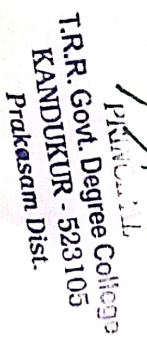 PRINCIPAL
T.R.R. Govt. Degree College
KANDUKUR - 523105
Prakasam Dist.